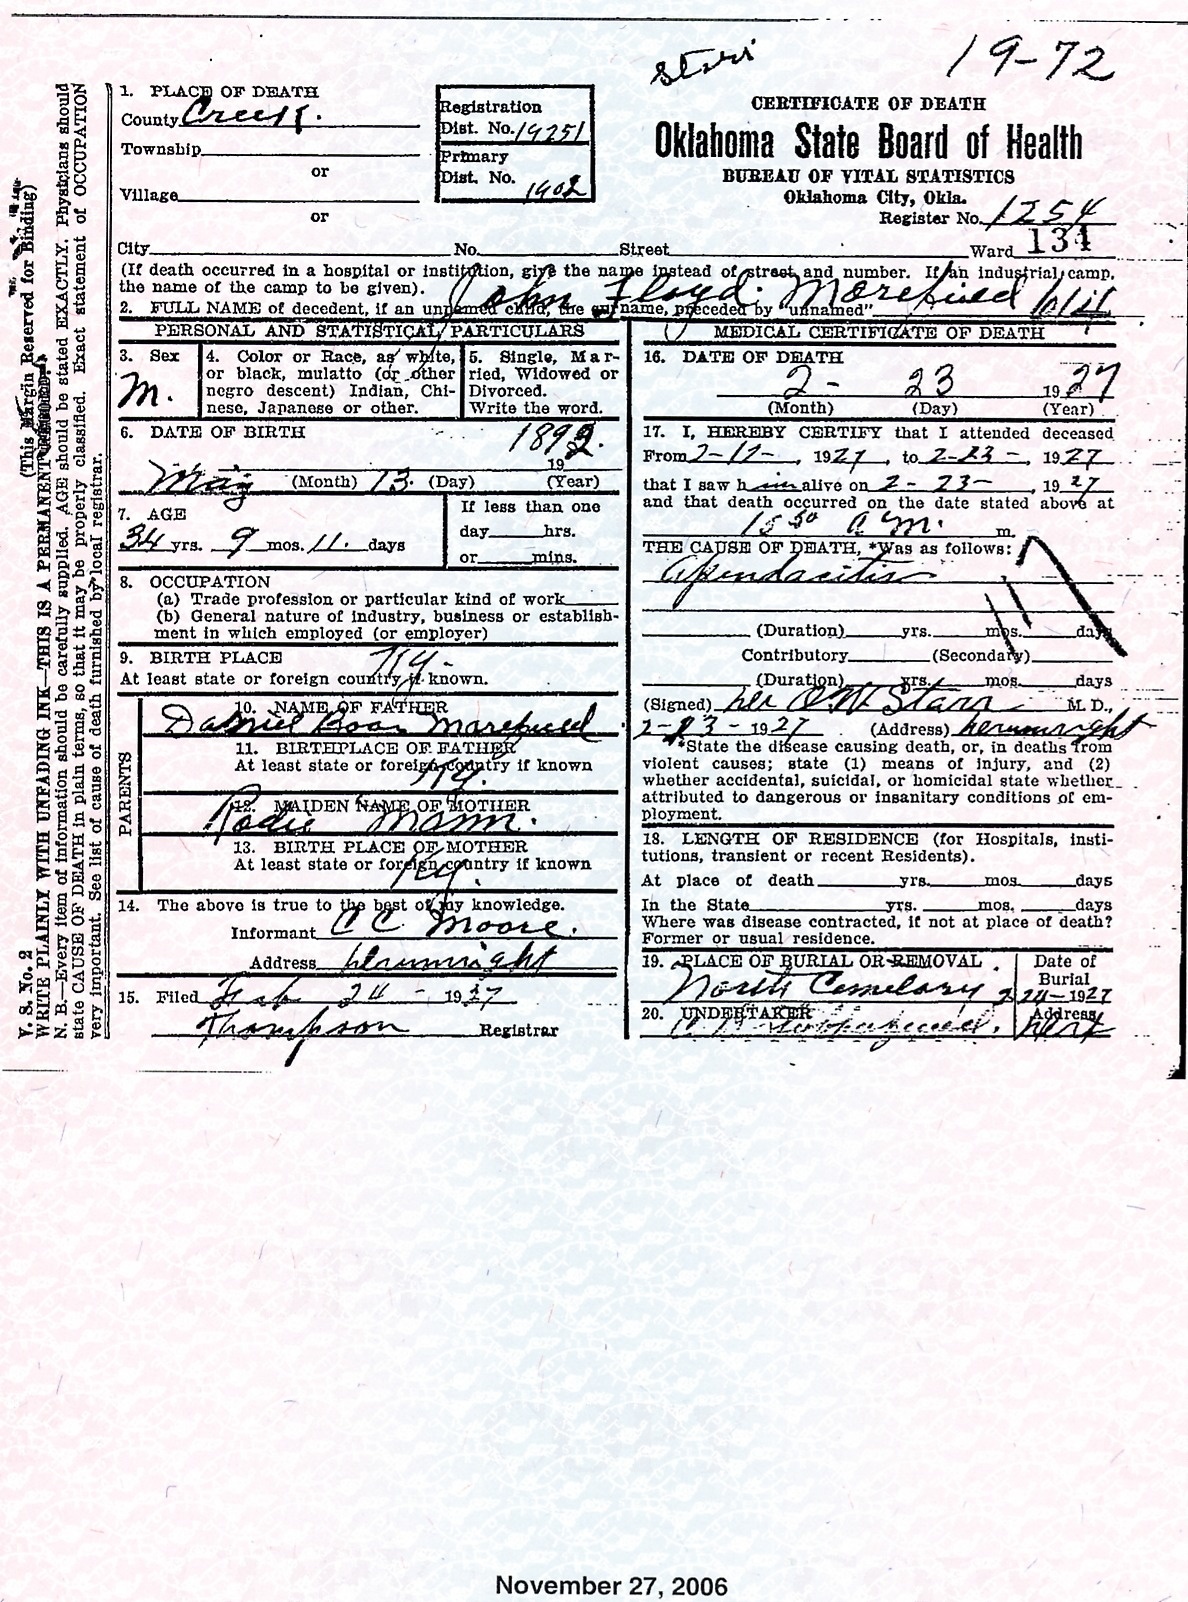 19-72
1. PLACE OF DEATH
County Creek.
Township
or
Village
or
Registration
Dist. No. 19251
Primary
Dist. No.
1902
CERTIFICATE OF DEATH
Oklahoma State Board of Health
BUREAU OF VITAL STATISTICS
Oklahoma City, Okla.
Register No. 1254
City No. Street Ward 134
(If death occurred in a hospital or institution, give the name instead of street and number. If an industrial camp,
the name of the camp to be given).
John Floyd Morefield
2. FULL NAME of decedent, if an unnamed child, the surname, preceded by "unnamed"
PERSONAL AND STATISTICAL PARTICULARS
3. Sex
M.
4. Color or Race, as white,
or black, mulatto (or other
negro descent) Indian, Chi-
nese, Japanese or other.
5. Single, Mar-
ried, Widowed or
Divorced.
Write the word.
6. DATE OF BIRTH
1892.
19
May (Month) 13. (Day) (Year)
7. AGE
34 yrs. 9 mos. 11. days
If less than one
day hrs.
or mins.
8. OCCUPATION
(a) Trade profession or particular kind of work
(b) General nature of industry, business or establish-
ment in which employed (or employer)
9. BIRTH PLACE
Ky.
At least state or foreign country if known.
PARENTS
10. NAME OF FATHER
Daniel Boan Morefield
11. BIRTHPLACE OF FATHER
At least state or foreign country if known
Ky.
12. MAIDEN NAME OF MOTHER
Rodie Mann.
13. BIRTH PLACE OF MOTHER
At least state or foreign country if known
Ky.
14. The above is true to the best of my knowledge.
Informant C C Moore.
Address
15. Filed Feb 24 - 1927
Thompson Registrar
MEDICAL CERTIFICATE OF DEATH
16. DATE OF DEATH
2- 23 1927
(Month) (Day) (Year)
17. I, HEREBY CERTIFY that I attended deceased
From 2-17-, 1927, to 2-23-, 1927
that I saw him alive on 2-23-, 1927
and that death occurred on the date stated above at
a m. m.
THE CAUSE OF DEATH, *Was as follows:
Apendacitis
117
(Duration) yrs. mos. days
Contributory (Secondary)
(Duration) yrs. mos. days
(Signed) Starr M. D.,
2-23-1927 (Address)
*State the disease causing death, or, in deaths from
violent causes; state (1) means of injury, and (2)
whether accidental, suicidal, or homicidal state whether
attributed to dangerous or insanitary conditions of em-
ployment.
18. LENGTH OF RESIDENCE (for Hospitals, insti-
tutions, transient or recent Residents).
At place of death yrs. mos. days
In the State yrs. mos. days
Where was disease contracted, if not at place of death?
Former or usual residence.
19. PLACE OF BURIAL OR REMOVAL
North Cemetary
Date of
Burial
2-24-1927
20. UNDERTAKER
Address
(This Margin Reserved for Binding)
V. S. No. 2
WRITE PLAINLY WITH UNFADING INK—THIS IS A PERMANENT RECORD.
N. B.—Every item of information should be carefully supplied. AGE should be stated EXACTLY. Physicians should
state CAUSE OF DEATH in plain terms, so that it may be properly classified. Exact statement of OCCUPATION
very important. See list of cause of death furnished by local registrar.
November 27, 2006